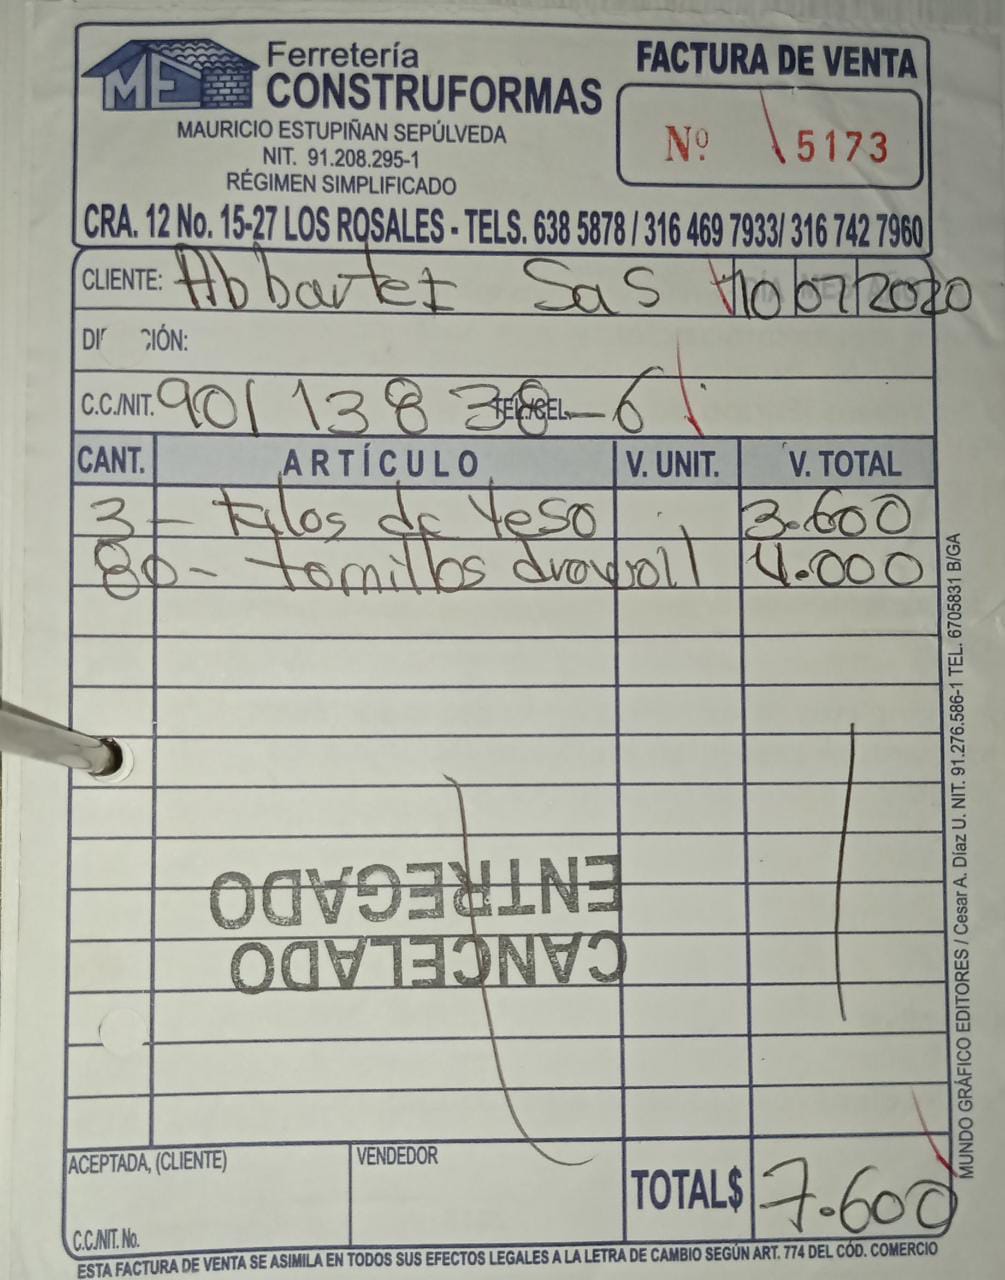 ME Ferretería
CONSTRUFORMAS
MAURICIO ESTUPIÑAN SEPÚLVEDA
NIT. 91.208.295-1
RÉGIMEN SIMPLIFICADO
FACTURA DE VENTA
Nº 5173
CRA. 12 No. 15-27 LOS ROSALES - TELS. 638 5878 / 316 469 7933/ 316 742 7960
CLIENTE: Abbartei Sas 10 07 2020
DI CIÓN:
C.C./NIT. 901138838-6 TEL./CEL.
CANT. ARTÍCULO V. UNIT. V. TOTAL
3 - Kilos de Yeso 3.600
80 - tornillos drayroll 4.000
ENTREGADO
CANCELADO
ACEPTADA, (CLIENTE) VENDEDOR
C.C./NIT. No.
TOTAL$ 7.600
ESTA FACTURA DE VENTA SE ASIMILA EN TODOS SUS EFECTOS LEGALES A LA LETRA DE CAMBIO SEGÚN ART. 774 DEL CÓD. COMERCIO
MUNDO GRÁFICO EDITORES / Cesar A. Díaz U. NIT. 91.276.586-1 TEL. 6705831 B/GA